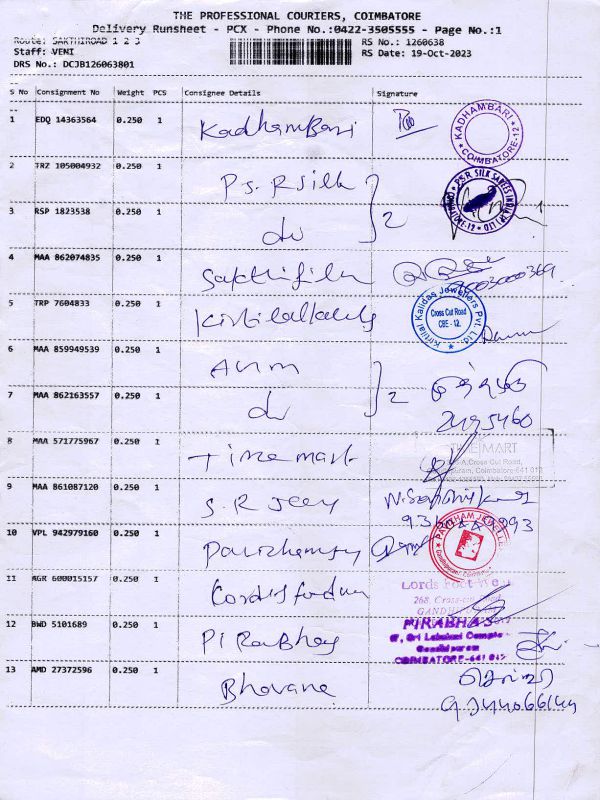 THE PROFESSIONAL COURIERS, COIMBATORE
Delivery Runsheet - PCX - Phone No.:0422-3505555 - Page No.:1
Route: SAKTHIROAD 1 2 3
RS No.: 1260638
Staff: VENI
RS Date: 19-Oct-2023
DRS No.: DCJB126063801
S No Consignment No Weight PCS Consignee Details Signature
1 EDQ 14363564 0.250 1 Kadhambari
KADHAMBARI
COIMBATORE-12
2 TRZ 105004932 0.250 1 P.S.R silk
P.S.R. SILK SAREES INDIA
3 RSP 1823538 0.250 1 do 2
4 MAA 862074835 0.250 1 Sakthi
5 TRP 7604833 0.250 1
Kirtilal Kalidas Jewellers Pvt. Ltd.
Cross Cut Road
CBE - 12.
6 MAA 859949539 0.250 1
7 MAA 862163557 0.250 1 do 2
2495460
8 MAA 571775967 0.250 1 Time mark
TIME MART
Cross Cut Road,
Coimbatore-641 012
9 MAA 861087120 0.250 1 S.R Jeey
10 VPL 942979160 0.250 1
11 AGR 600015157 0.250 1
Lords Footwe
268, Cross-cut
GANDHI
12 BWD 5101689 0.250 1 PIRabhas
PIRABHAS
Sri Lakshmi Complex
Gandhipuram
COIMBATORE-641 012
13 AMD 27372596 0.250 1 Bhavana